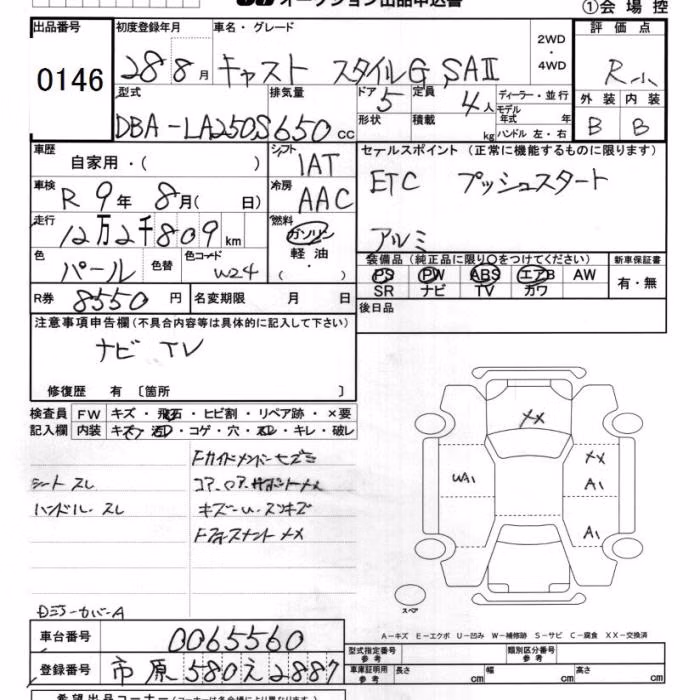 オークション出品申込書 ①会場控
出品番号 初度登録年月 車名・グレード 2WD・4WD 評価点
0146 28 8月 キャスト スタイルG SAⅡ R小
型式 排気量 ドア 5 定員 4人 ディーラー・並行 外装 内装
モデル年式 年
DBA-LA250S 650cc 形状 積載 kg ハンドル 左・右 B B
車歴 自家用・( ) シフト IAT セールスポイント (正常に機能するものに限ります)
車検 R 9年 8月( 日) 冷房 AAC ETC プッシュスタート
走行 12万2千809km 燃料 ガソリン 軽油 ・( ) アルミ
色 パール 色替 色コード W24 装備品 (純正品に限り○をつけてください) 新車保証書
PS PW ABS エアB AW 有・無
SR ナビ TV カワ
R券 8550円 名変期限 月 日 後日品
注意事項申告欄(不具合内容等は具体的に記入して下さい)
ナビ TV
修復歴 有 〔箇所 〕
検査員 FW キズ・飛石・ヒビ割・リペア跡・×要
記入欄 内装 キズ・汚・コゲ・穴・スレ・キレ・破レ
シート スレ
ハンドル スレ
XX
XX
WA1 A1
A1
スペア
A-キズ E-エクボ U-凹み W-補修跡 S-サビ C-腐食 XX-交換済
車台番号 0065560 型式指定番号 参考 類別区分番号 参考
登録番号 市原 580 え 2887 車庫証明用 参考 長さ cm 幅 cm 高さ cm
希望出品コーナー